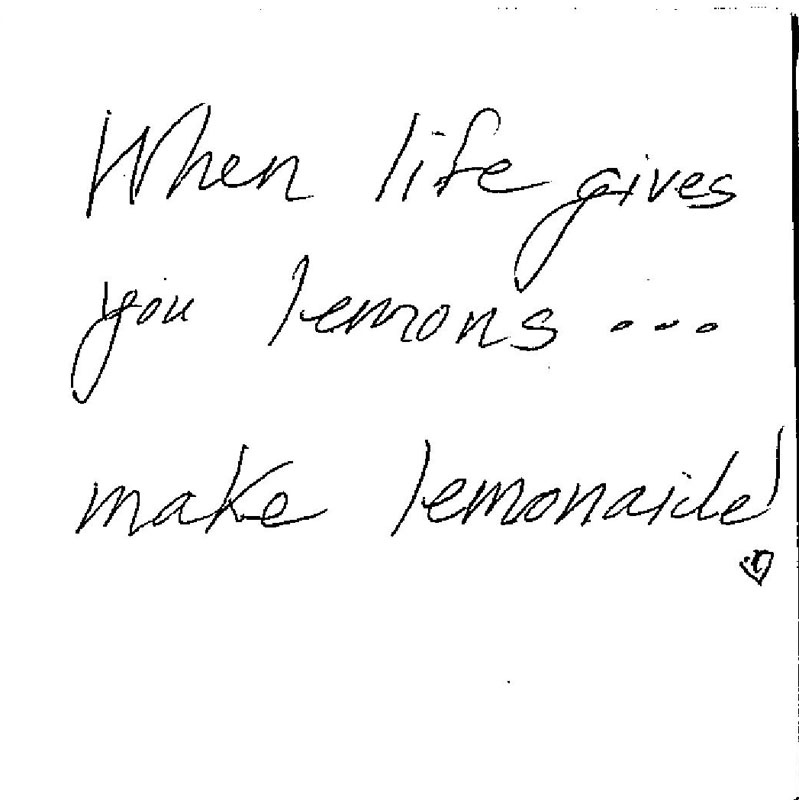 When life gives
you lemons...
make lemonaide!